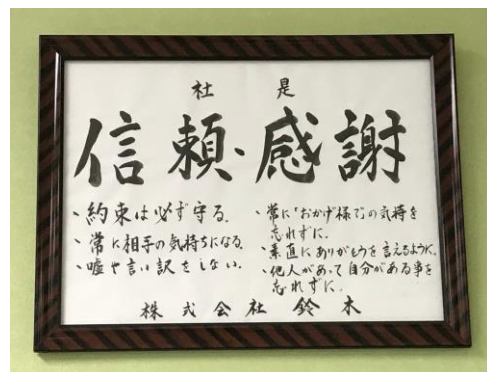 社是
信頼・感謝
・約束は必ず守る。
・常に相手の気持ちになる。
・嘘や言い訳をしない。
・常に「おかげ様で」の気持を
忘れずに。
・素直にありがとうを言えるように。
・他人があって自分がある事を
忘れずに。
株式会社 鈴木